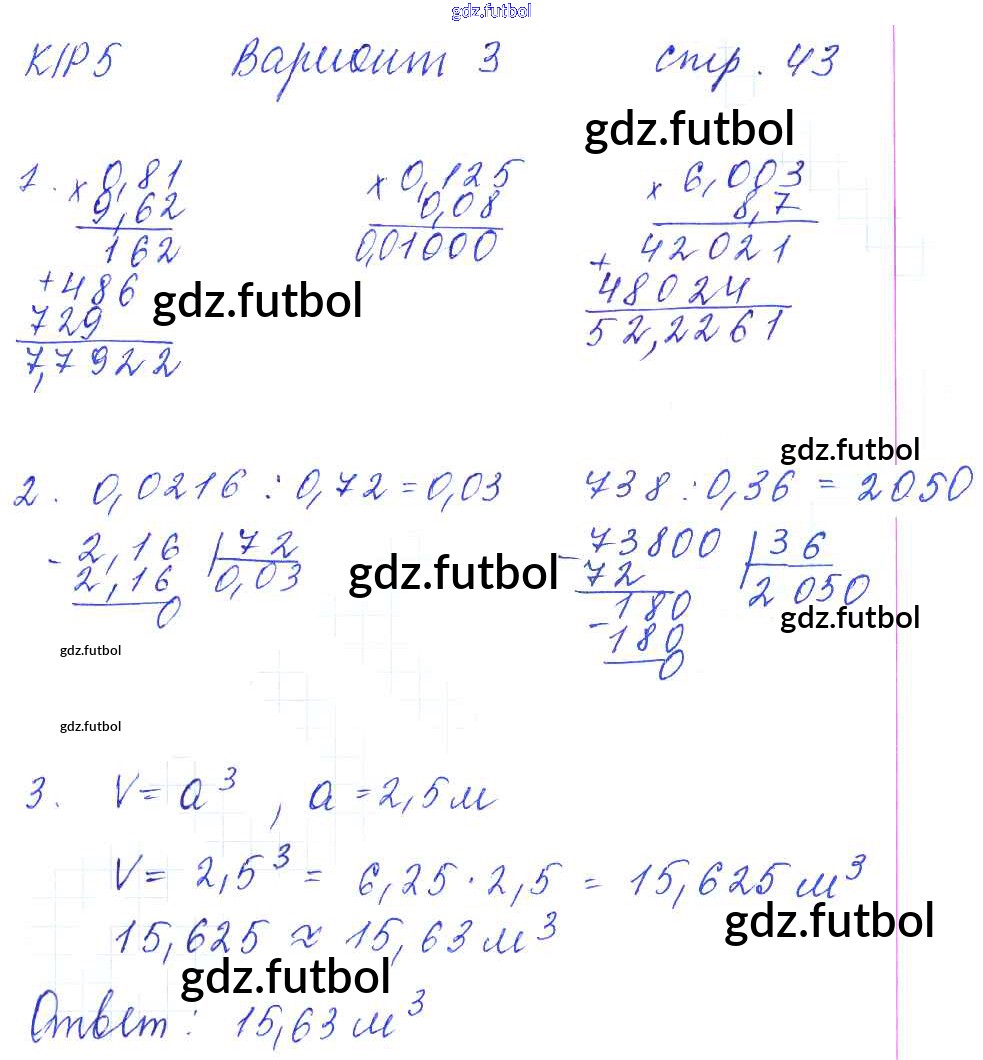 gdz.futbol
К/Р 5 Вариант 3 стр. 43
gdz.futbol
1. × 0,81 × 0,125 × 6,003
9,62 0,08 8,7
162 0,01000 + 42021
+ 486 gdz.futbol 48024
729 52,2261
7,7922
gdz.futbol
2. 0,0216 : 0,72 = 0,03 738 : 0,36 = 2050
- 2,16 | 72 - 73800 | 36
2,16 0,03 gdz.futbol 72 2 050
0 - 180 gdz.futbol
gdz.futbol 180
0
gdz.futbol
3. V = a³, a = 2,5 м
V = 2,5³ = 6,25 · 2,5 = 15,625 м³
gdz.futbol
15,625 ≈ 15,63 м³
gdz.futbol
Ответ: 15,63 м³